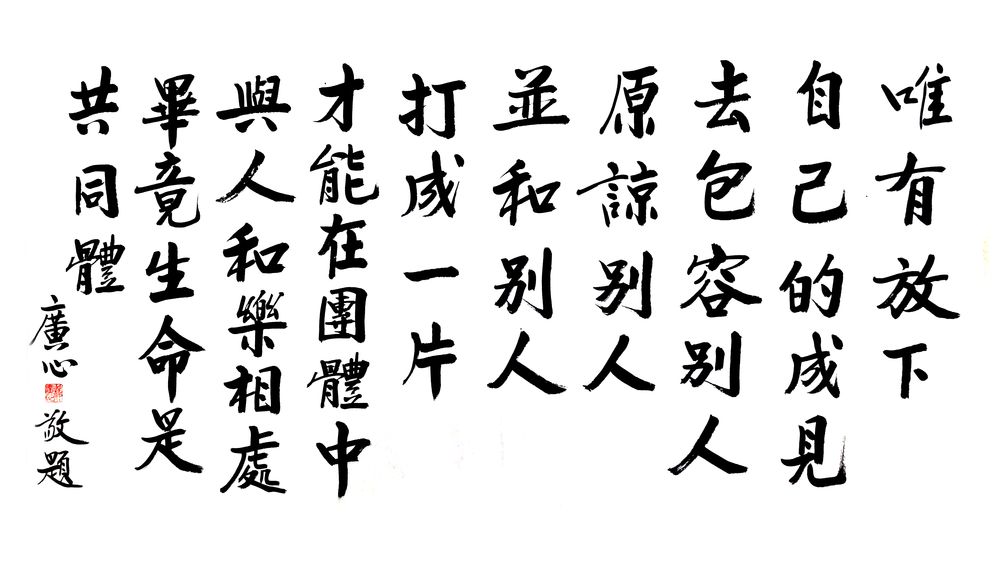 唯有放下
自己的成見
去包容別人
原諒別人
並和別人
打成一片
才能在團體中
與人和樂相處
畢竟生命是
共同體
廣心敬題